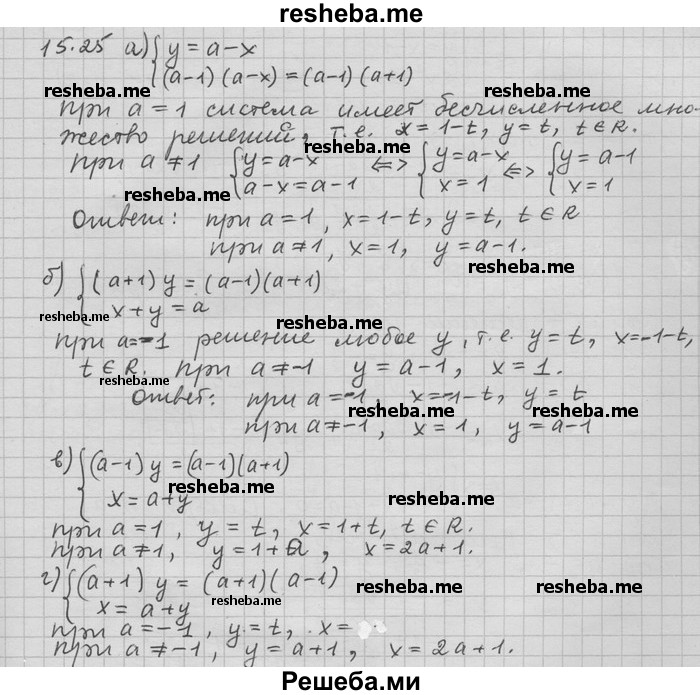 resheba.me
15.25 а) { y = a - x
(a-1)(a-x) = (a-1)(a+1)
resheba.me resheba.me
при a = 1 система имеет бесчисленное мно-
жество решений, т.е. x = 1-t, y = t, t ∈ R.
resheba.me
при a ≠ 1 { y = a-x ⇔ { y = a-x ⇔ { y = a-1
a-x = a-1 x = 1 x = 1
resheba.me
Ответ: при a = 1, x = 1-t, y = t, t ∈ R
при a ≠ 1, x = 1, y = a-1.
resheba.me
б) { (a+1) y = (a-1)(a+1)
x + y = a
resheba.me resheba.me
при a = -1 решение любое y, т.е. y = t, x = -1-t,
t ∈ R. при a ≠ -1 y = a-1, x = 1.
resheba.me
Ответ: при a = -1, x = -1-t, y = t
resheba.me resheba.me
при a ≠ -1, x = 1, y = a-1
в) { (a-1) y = (a-1)(a+1)
x = a+y
resheba.me resheba.me
при a = 1, y = t, x = 1+t, t ∈ R.
при a ≠ 1, y = 1+a, x = 2a+1.
г) { (a+1) y = (a+1)(a-1)
x = a+y
resheba.me resheba.me resheba.me
при a = -1, y = t, x =
при a ≠ -1, y = a+1, x = 2a+1.
Решеба.ми